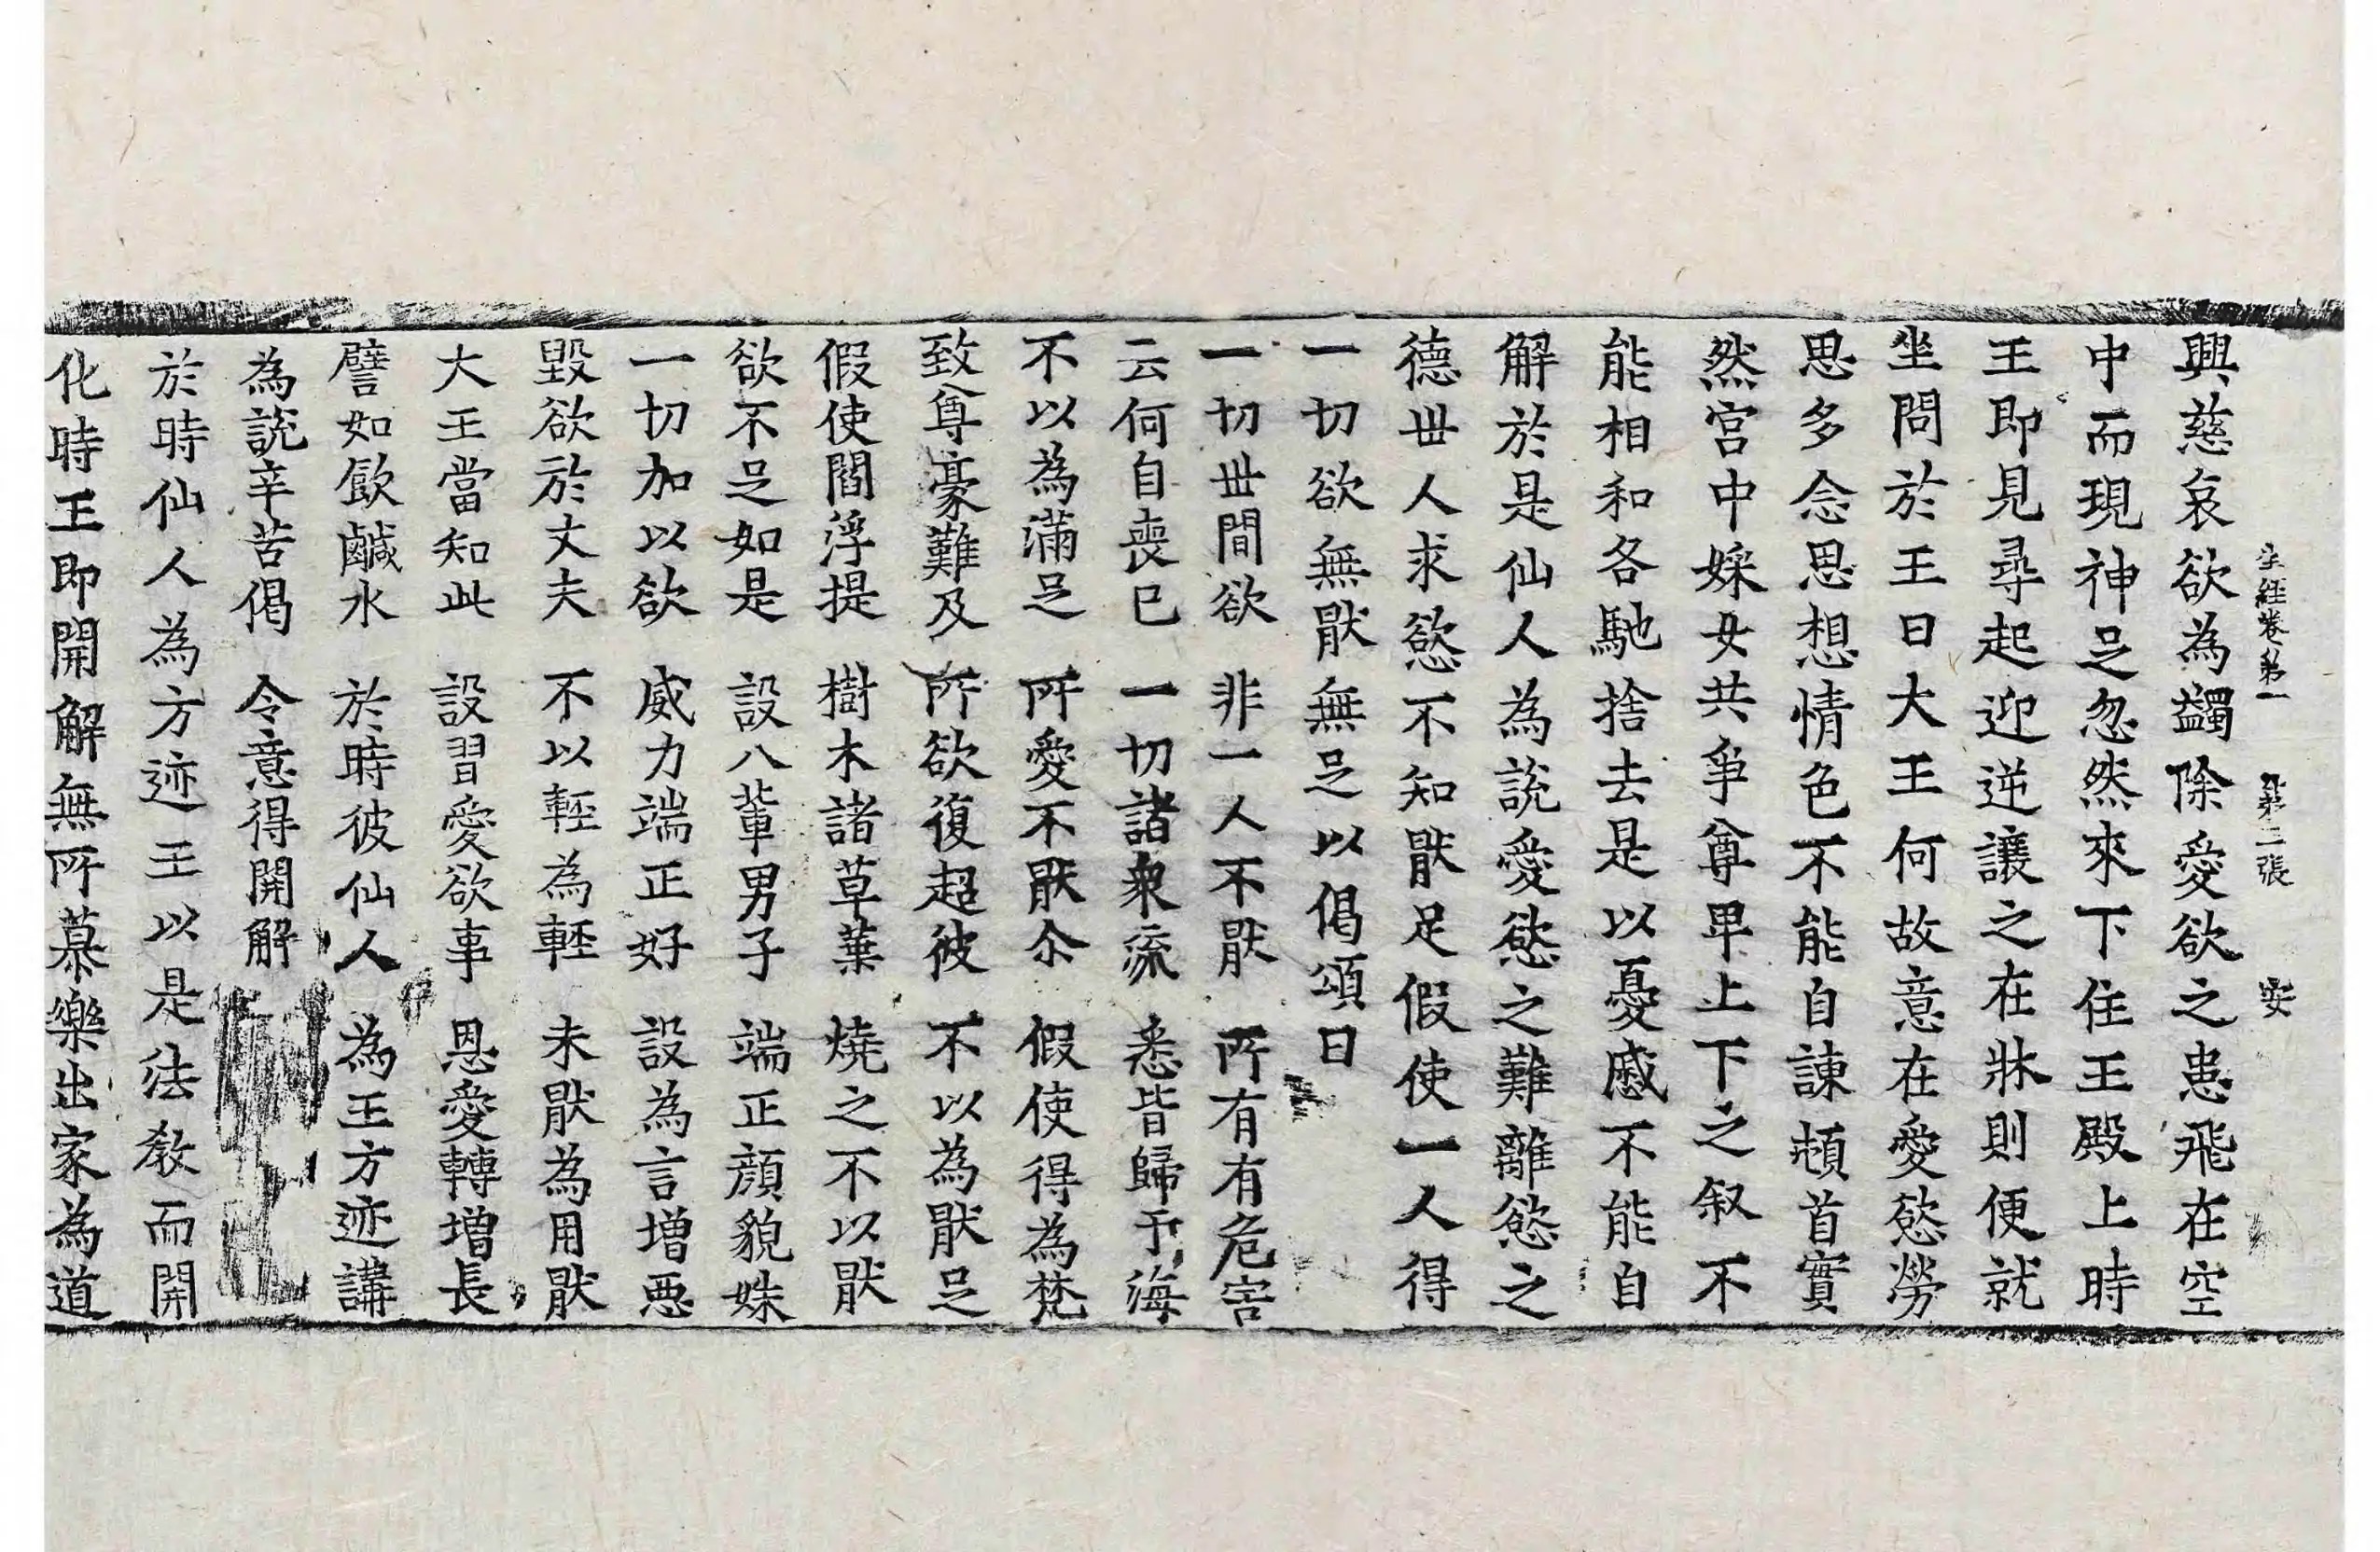 生經卷第一 第二張 安
興慈哀欲為蠲除愛欲之患飛在空
中而現神足忽然來下住王殿上時
王即見尋起迎逆讓之在牀則便就
坐問於王曰大王何故意在愛慾勞
思多念思想情色不能自諫頓首實
然宮中婇女共爭尊卑上下之叙不
能相和各馳捨去是以憂慼不能自
解於是仙人為說愛慾之難離慾之
德世人求慾不知厭足假使一人得
一切欲無厭無足以偈頌曰
一切世間欲 非一人不厭 所有有危害
云何自喪已 一切諸衆流 悉皆歸于海
不以為滿足 所愛不厭尒 假使得為梵
致尊豪難及 所欲復超彼 不以為厭足
假使閻浮提 樹木諸草葉 燒之不以厭
欲不足如是 設八輩男子 端正顔貌姝
一切加以欲 威力端正好 設為言增惡
毀欲於丈夫 不以輕為輕 未厭為用厭
大王當知此 設習愛欲事 恩愛轉增長
譬如飲鹹水 於時彼仙人 為王方迹講
為說辛苦偈 令意得開解
於時仙人為方迹王以是法教而開
化時王即開解無所慕樂出家為道